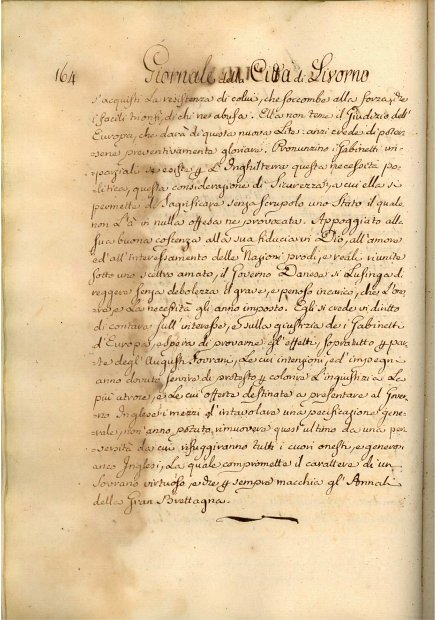 164 Giornale della Città di Livorno
s'acquisti la resistenza di colui, che soccombe alla forza, che
i facili trionfi, di chi ne abusa. Ella non teme il Giudizio dell'
Europa, che darà di questa nuova Lite: anzi crede di poter-
sene preventivamente gloriare. Pronunzino i Gabinetti im-
parziali se esiste p L'Inghilterra questa necessità po-
litica, questa considerazione di Sicurezza, a cui ella si
permette di sagrificare senza scrupolo uno Stato il quale
non L'à in nulla offesa ne provocata. Appoggiato alla
sua buona coscenza alla sua fiducia in Dio, all'amore
ed all'interessamento delle Nazioni prodi, e reali riunite
sotto uno scettro amato, il Governo Danese si Lusinga di
reggere senza debolezza il grave, e penoso incarico, che L'ono-
re, e La necessità gli anno imposto. Egli si crede in diritto
di contare sull'interesse, e sulla giustizia de i Gabinetti
d'Europa, e spera di provarne gl'effetti, sopratutto p par-
te degl'Augusti Sovrani, Le cui intenzioni, ed impegni
anno dovuto servire di pretesto p colorire L'ingiustizia La
più atroce, e Le cui offerte destinate a presentare al Gover-
no Inglese i mezzi p intavolare una pacificazione gene-
rale, non anno potuto rimuovere quest'ultimo da una per-
versità da cui rifuggiranno tutti i cuori onesti, e generosi
anco Inglesi, La quale compromette il carattere di un
Sovrano virtuoso e che p sempre macchia gl'Annali
della Gran Brettagna.